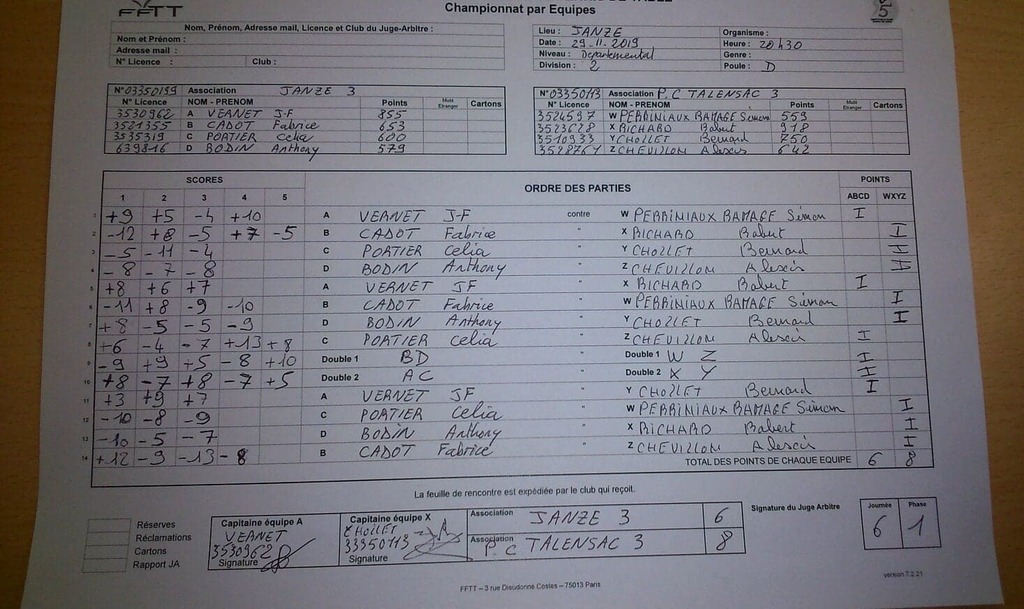 FFTT
Championnat par Equipes
Nom, Prénom, Adresse mail, Licence et Club du Juge-Arbitre :
Nom et Prénom :
Adresse mail :
N° Licence : Club :
Lieu : JANZE Organisme :
Date : 29-11-2019 Heure : 20h30
Niveau : Departemental Genre :
Division : 2 Poule : D
N° 03350159 Association JANZE 3
N° Licence NOM - PRENOM Points Muté Etranger Cartons
3530962 A VERNET J-F 855
3521355 B CADOT Fabrice 653
3535319 C PORTIER Celia 600
639816 D BODIN Anthony 579
N° 03350113 Association P.C TALENSAC 3
N° Licence NOM - PRENOM Points Muté Etranger Cartons
3524597 W PERRINIAUX RAMAGE Simon 553
3523628 X RICHARD Robert 918
3510933 Y CHOLLET Bernard 750
3528764 Z CHEVILLON Alexis 642
SCORES ORDRE DES PARTIES POINTS
1 2 3 4 5 ABCD WXYZ
1 +9 +5 -4 +10 A VERNET J-F contre W PERRINIAUX RAMAGE Simon I
2 -12 +8 -5 +7 -5 B CADOT Fabrice " X RICHARD Robert I
3 -5 -11 -4 C PORTIER Celia " Y CHOLLET Bernard I
4 -8 -7 -8 D BODIN Anthony " Z CHEVILLON Alexis I
5 +8 +6 +7 A VERNET JF " X RICHARD Robert I
6 -11 +8 -9 -10 B CADOT Fabrice " W PERRINIAUX RAMAGE Simon I
7 +8 -5 -5 -9 D BODIN Anthony " Y CHOLLET Bernard I
8 +6 -4 -7 +13 +8 C PORTIER Celia " Z CHEVILLON Alexis I
9 -9 +9 +5 -8 +10 Double 1 BD Double 1 W Z I
10 +8 -7 +8 -7 +5 Double 2 AC " Double 2 X Y I
11 +3 +9 +7 A VERNET JF " Y CHOLLET Bernard I
12 -10 -8 -9 C PORTIER Celia " W PERRINIAUX RAMAGE Simon I
13 -10 -5 -7 D BODIN Anthony " X RICHARD Robert I
14 +12 -9 -13 -8 B CADOT Fabrice " Z CHEVILLON Alexis I
TOTAL DES POINTS DE CHAQUE EQUIPE 6 8
La feuille de rencontre est expédiée par le club qui reçoit.
Réserves
Réclamations
Cartons
Rapport JA
Capitaine équipe A
VERNET
3530962
Signature
Capitaine équipe X
CHOLLET
33350113
Signature
Association JANZE 3 6
Association P.C TALENSAC 3 8
Signature du Juge Arbitre
Journée Phase
6 1
FFTT – 3 rue Dieudonné Costes – 75013 Paris
version 7.2.21